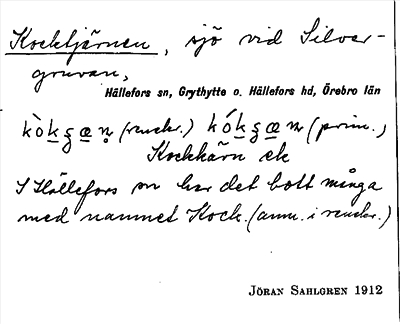 Kocktjärnen, sjö vid Silver-
gruvan,
Hällefors sn, Grythytte o. Hällefors hd, Örebro län
(renskr.) (prim.,
Kockkärn ek
I Hällefors sn har det bott många
med namnet Kock. (anm. i renskr.)
JÖRAN SAHLGREN 1912